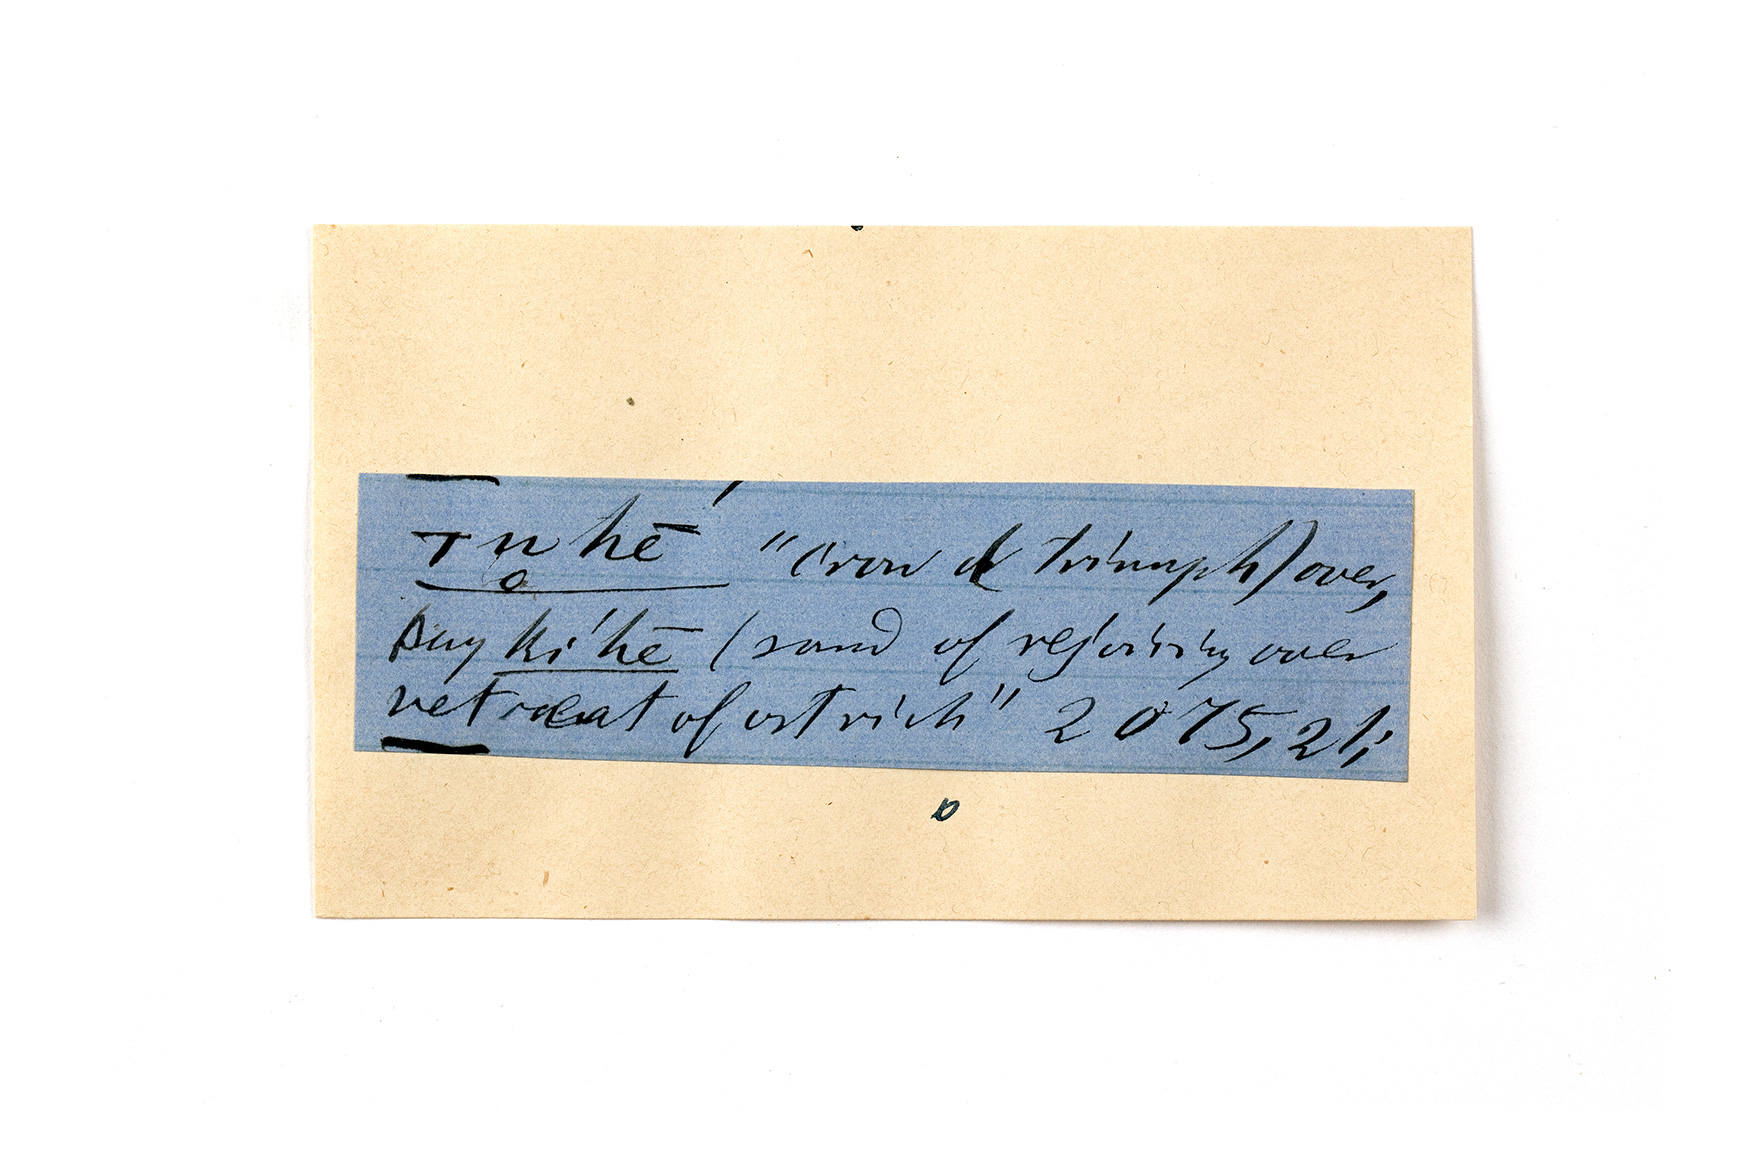 "(crow of triumph) over,
say kí hē (sound of rejoicing over
retreat of ostrich" 2075, 21;